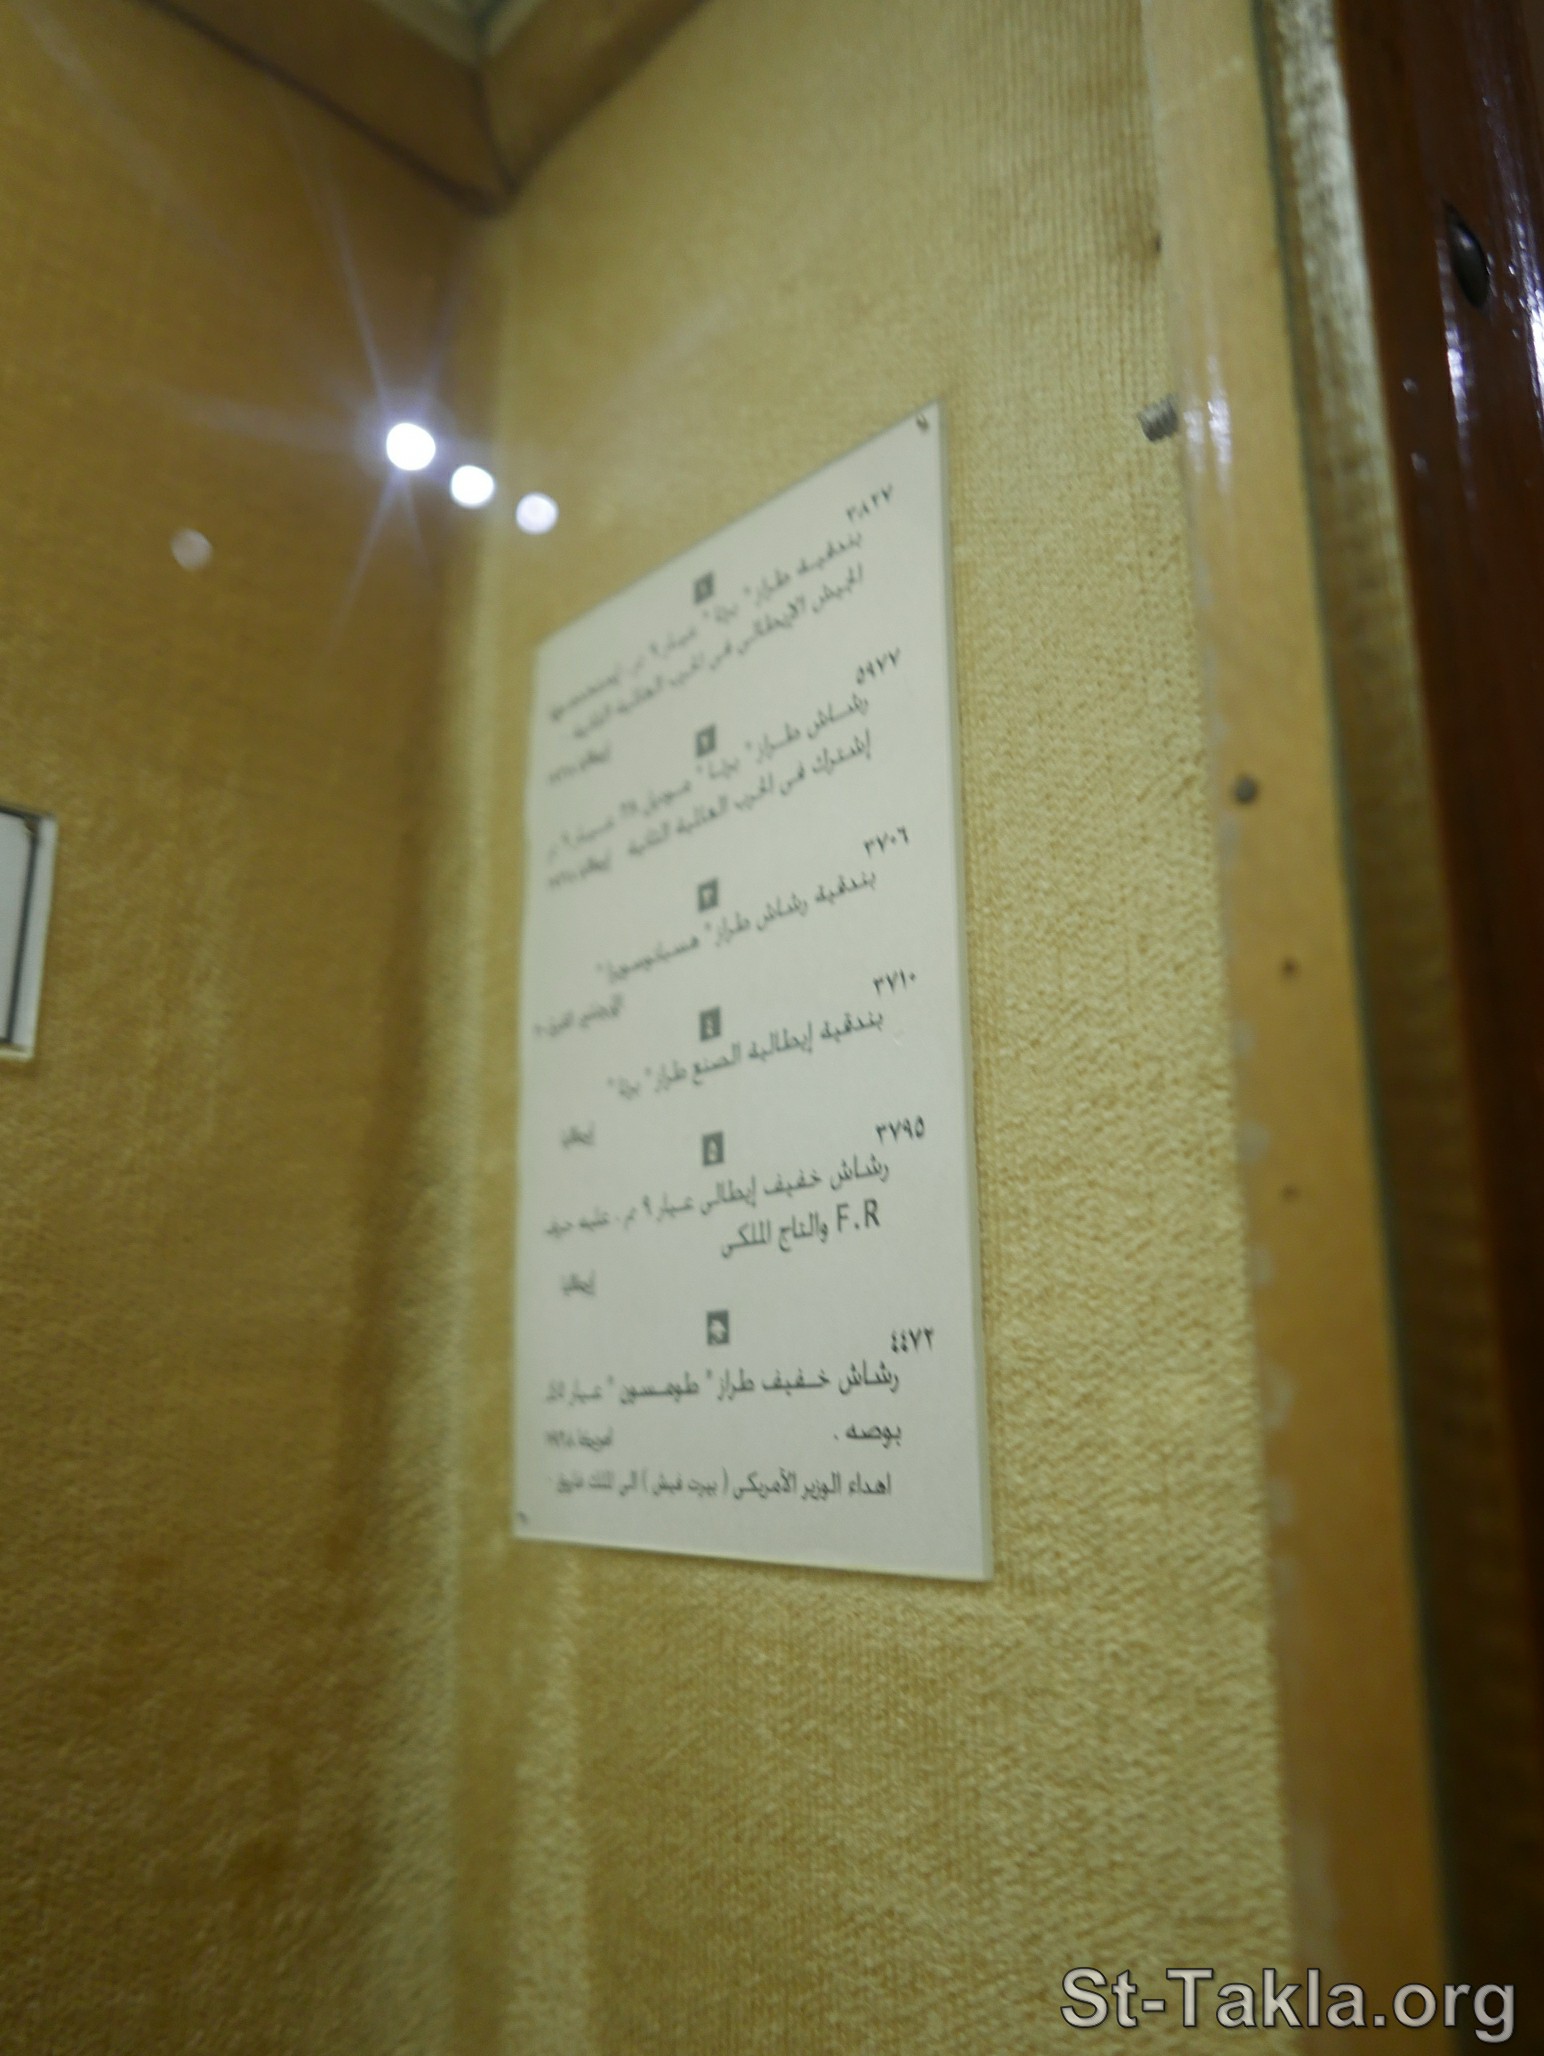 ٣٨٢٧
١
بندقيـه طـراز " برتا " عيـار ٩ مم
الجيش الإيطالى فى الحرب العالمية الثانية
٥٩٧٧
٢
رشـاش طـراز " برتـا " مـوديل ٣٨ عـيـار ٩ مم
إشترك فى الحرب العالمية الثانية
٣٧٠٦
٣
بندقيه رشاش طراز " هسبانوسويزا "
٣٧١٠
٤
بندقيه إيطاليه الصنع طراز " برتا "
إيطاليا
٣٧٩٥
٥
رشـاش خفيف إيطالى عيـار ٩ مم . عليه حرف
F.R والتاج الملكى
إيطاليا
٤٤٧٢
رشاش خـفيف طراز " طومسون " عـيار
بوصه . أمريكا
اهداء الوزير الأمريكى ( بيرت فيش ) الى الملك فاروق .
St-Takla.org